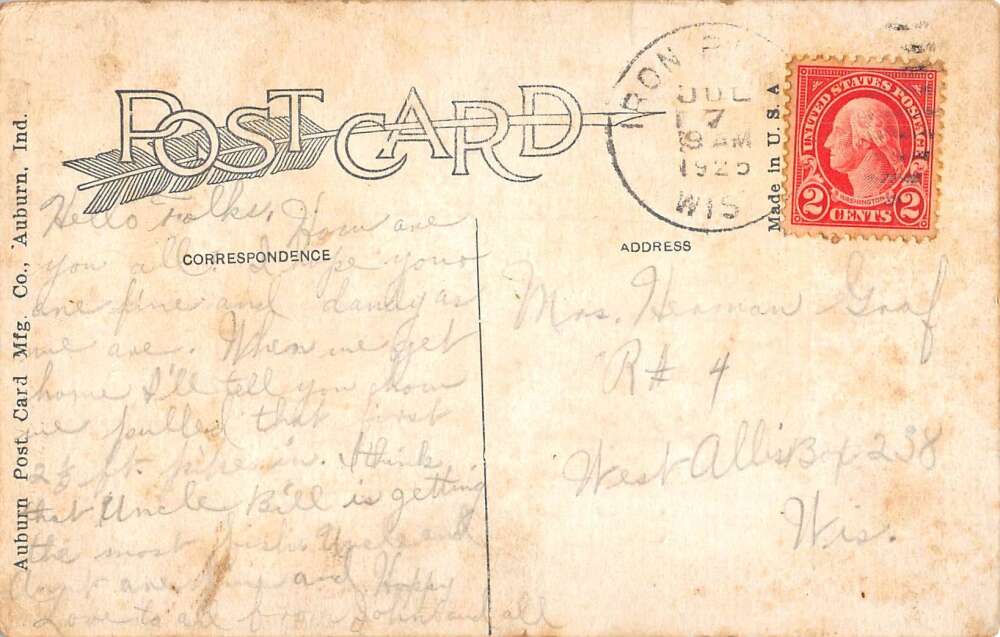 POST CARD
IRON
JUL
7
9 AM
1925
WIS
Made in U.S.A
UNITED STATES POSTAGE
WASHINGTON
2 CENTS 2
Auburn Post Card Mfg. Co., Auburn, Ind.
CORRESPONDENCE
Hello Folks, How are
you all. I hope your
are fine and dandy as
we are. When we get
home I'll tell you how
we pulled that first
2½ ft. pike in. I think
that Uncle Bill is getting
the most fish. Uncle and
are and Happy
Love to all from all
ADDRESS
Mrs. Herman Graf
R# 4
West Allis Box 238
Wis.